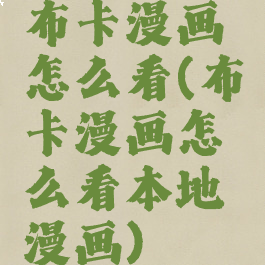 布卡漫画
怎么看(布
卡漫画怎
么看本地
漫画)